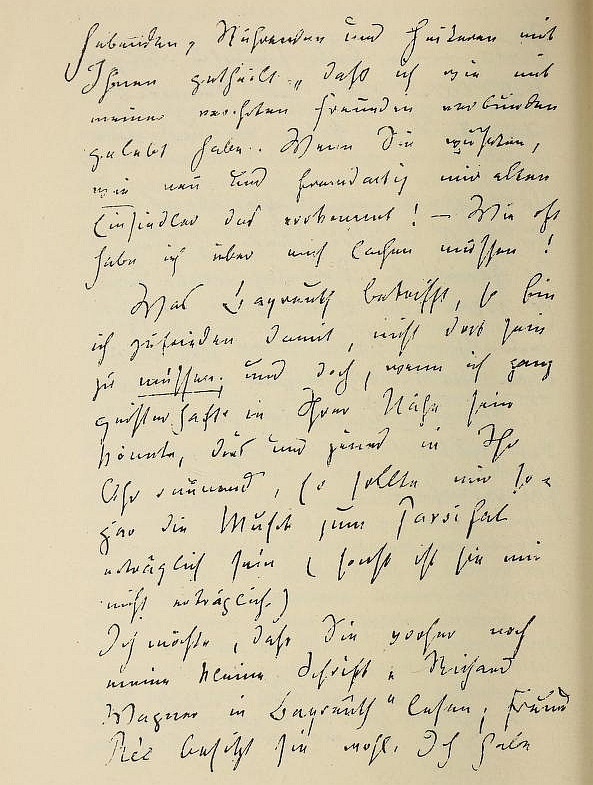 hebenden, Rührenden und Heiteren mit
Ihnen getheilt, daß ich wie mit
meinen verehrten Freunden verbunden
gelebt habe. Wenn Sie wüßten,
wie neu und fremdartig mir alten
Einsiedler das vorkommt! — Wie oft
habe ich über mich lachen müssen!
Was Bayreuth betrifft, so bin
ich zufrieden damit, nicht dort sein
zu müssen; und doch, wenn ich ganz
geisterhaft in Ihrer Nähe sein
könnte, dies und jenes in Ihr
Ohr raunend, so sollte mir so-
gar die Musik zum Parsifal
erträglich sein (sonst ist sie mir
nicht erträglich.)
Ich möchte, daß Sie vorher noch
meine kleine Schrift „Richard
Wagner in Bayreuth“ lesen; Freund
Rée besitzt sie wohl. Ich habe